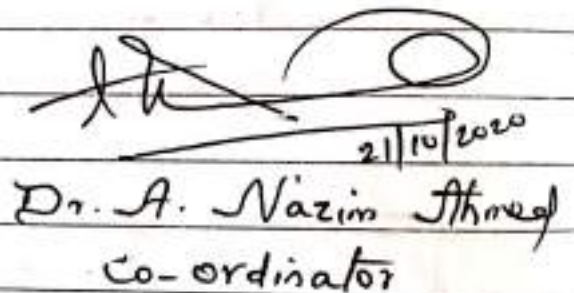 21/10/2020
Dr. A. Nazim Ahmed
Co-ordinator